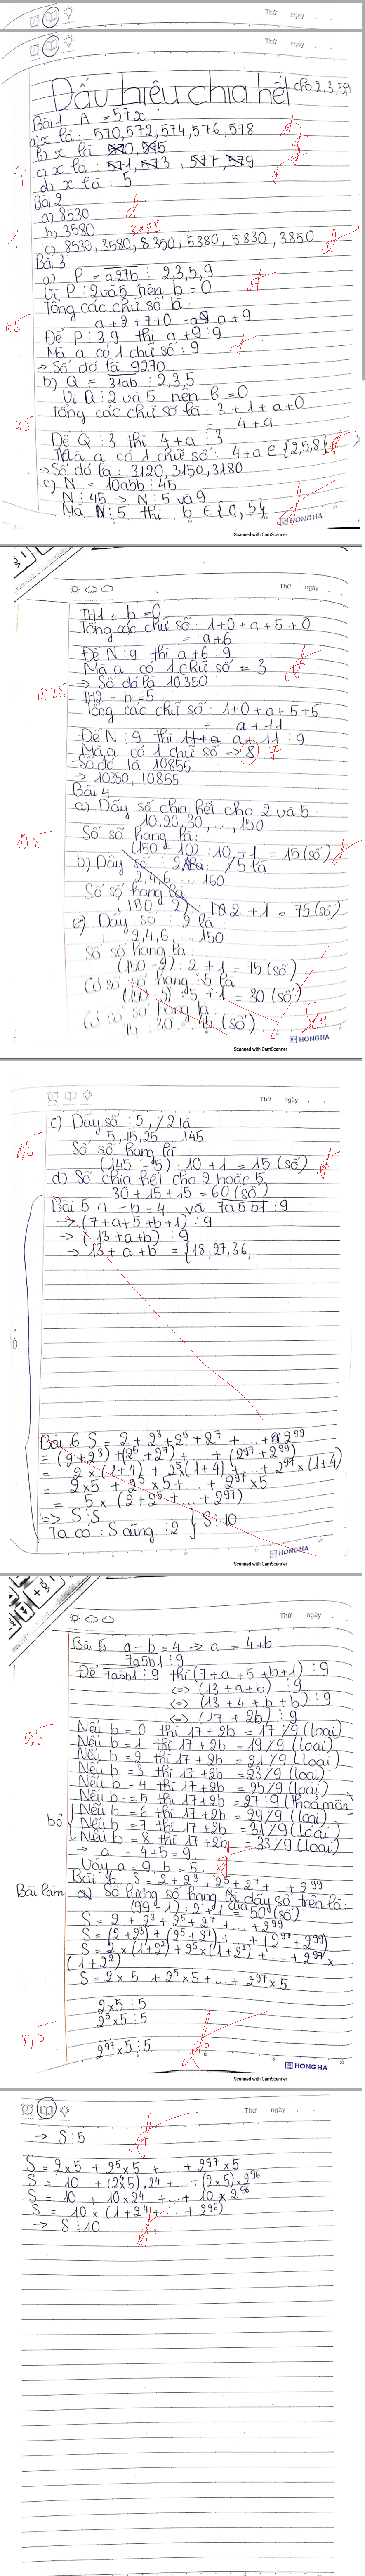 Thứ ngày . .
Thứ ngày . .
Dấu hiệu chia hết cho 2,3,5,9
Bài 1 A = 57x
a) x là : 570,572,574,576,578
b) x là 570, 575
4
c) x là : 571, 573, 577, 579
d) x là : 5
Bài 2
a) 8530
b) 3580 3885
1
c) 8530, 3580, 8350, 5380, 5830, 3850
Bài 3
a) P = a27b ⋮ 2,3,5,9
Vì P ⋮ 2 và 5 nên b = 0
Tổng các chữ số là
a + 2 + 7 + 0 = a + 9
0,5
Để P ⋮ 3,9 thì a + 9 ⋮ 9
Mà a có 1 chữ số : 9
→ Số đó là 9270
b) Q = 31ab ⋮ 2,3,5
Vì Q ⋮ 2 và 5 nên b = 0
0,5
Tổng các chữ số là : 3 + 1 + a + 0
= 4 + a
Để Q ⋮ 3 thì 4 + a ⋮ 3
Mà a có 1 chữ số : 4 + a ∈ {2,5,8}
→ Số đó là : 3120, 3150, 3180
c) N = 10a5b ⋮ 45
N ⋮ 45 → N ⋮ 5 và 9
Mà N ⋮ 5 thì b ∈ {0, 5}
HONG HA
Scanned with CamScanner
Thứ ngày . .
TH1 : b = 0
Tổng các chữ số : 1 + 0 + a + 5 + 0
= a + 6
Để N ⋮ 9 thì a + 6 ⋮ 9
Mà a có 1 chữ số = 3
→ Số đó là 10350
0,25
TH2 = b = 5
Tổng các chữ số : 1 + 0 + a + 5 + 5
= a + 11
Để N ⋮ 9 thì a + 11 ⋮ 9
Mà a có 1 chữ số → 8 7
Số đó là 10855
→ 10350, 10855
Bài 4
a) Dãy số chia hết cho 2 và 5 :
10, 20, 30, ..., 150
0,5
Số số hạng là :
(150 - 10) : 10 + 1 = 15 (số)
b) Dãy số ⋮ 2, ⋮̸ 5 là
2,4,6 ... 150
Số số hạng là
(150 - 2) : 2 + 1 = 75 (số)
c) Dãy số ⋮ 2 là :
2,4,6 ... 150
Số số hạng là :
(150 - 2) : 2 + 1 = 75 (số)
Có số số hạng ⋮ 5 là
: 5 + 1 = 30 (số)
Có số số hạng là :
30 = 45 (số)
HONG HA
Scanned with CamScanner
Thứ ngày . .
c) Dãy số ⋮ 5, ⋮̸ 2 là
5, 15, 25 ... 145
0,5
Số số hạng là
(145 - 5) : 10 + 1 = 15 (số)
d) Số chia hết cho 2 hoặc 5
30 + 15 + 15 = 60 (số)
Bài 5 a - b = 4 và 7a5b1 ⋮ 9
→ (7 + a + 5 + b + 1) ⋮ 9
→ (13 + a + b) ⋮ 9
→ 13 + a + b = {18, 27, 36,
Bài 6 S = 2 + 2³ + 2⁵ + 2⁷ + ... + 2⁹⁹
= (2 + 2³) + (2⁵ + 2⁷) + ... + (2⁹⁷ + 2⁹⁹)
= 2 × (1 + 4) + 2⁵ (1 + 4) + ... + 2⁹⁷ × (1 + 4)
= 2 × 5 + 2⁵ × 5 + ... + 2⁹⁷ × 5
= 5 × (2 + 2⁵ + ... + 2⁹⁷)
=> S ⋮ 5
Ta có : S cũng ⋮ 2 } S ⋮ 10
HONG HA
Scanned with CamScanner
Thứ ngày . .
Bài 5 a - b = 4 → a = 4 + b
7a5b1 ⋮ 9
Để 7a5b1 ⋮ 9 thì (7 + a + 5 + b + 1) ⋮ 9
<=> (13 + a + b) ⋮ 9
<=> (13 + 4 + b + b) ⋮ 9
<=> (17 + 2b) ⋮ 9
0,5
Nếu b = 0 thì 17 + 2b = 17 ⋮̸ 9 (loại)
Nếu b = 1 thì 17 + 2b = 19 ⋮̸ 9 (loại)
Nếu b = 2 thì 17 + 2b = 21 ⋮̸ 9 (loại)
Nếu b = 3 thì 17 + 2b = 23 ⋮̸ 9 (loại)
Nếu b = 4 thì 17 + 2b = 25 ⋮̸ 9 (loại)
Nếu b = 5 thì 17 + 2b = 27 ⋮ 9 (thoả mãn)
Nếu b = 6 thì 17 + 2b = 29 ⋮̸ 9 (loại)
bỏ
Nếu b = 7 thì 17 + 2b = 31 ⋮̸ 9 (loại)
Nếu b = 8 thì 17 + 2b = 33 ⋮̸ 9 (loại)
→ a = 4 + 5 = 9
Vậy a = 9, b = 5
Bài 6 S = 2 + 2³ + 2⁵ + 2⁷ + ... + 2⁹⁹
Bài làm Số lượng số hạng của dãy số trên là :
(99 - 1) : 2 + 1 = 50 (số)
S = 2 + 2³ + 2⁵ + 2⁷ + ... + 2⁹⁹
S = (2 + 2³) + (2⁵ + 2⁷) + ... + (2⁹⁷ + 2⁹⁹)
S = 2 × (1 + 2²) + 2⁵ × (1 + 2²) + ... + 2⁹⁷ ×
(1 + 2²)
S = 2 × 5 + 2⁵ × 5 + ... + 2⁹⁷ × 5
2 × 5 ⋮ 5
2⁵ × 5 ⋮ 5
...
2⁹⁷ × 5 ⋮ 5
HONG HA
Scanned with CamScanner
Thứ ngày . .
→ S ⋮ 5
S = 2 × 5 + 2⁵ × 5 + ... + 2⁹⁷ × 5
S = 10 + (2 × 5) . 2⁴ + ... + (2 × 5) × 2⁹⁶
S = 10 + 10 × 2⁴ + ... + 10 × 2⁹⁶
S = 10 × (1 + 2⁴ + ... + 2⁹⁶)
→ S ⋮ 10